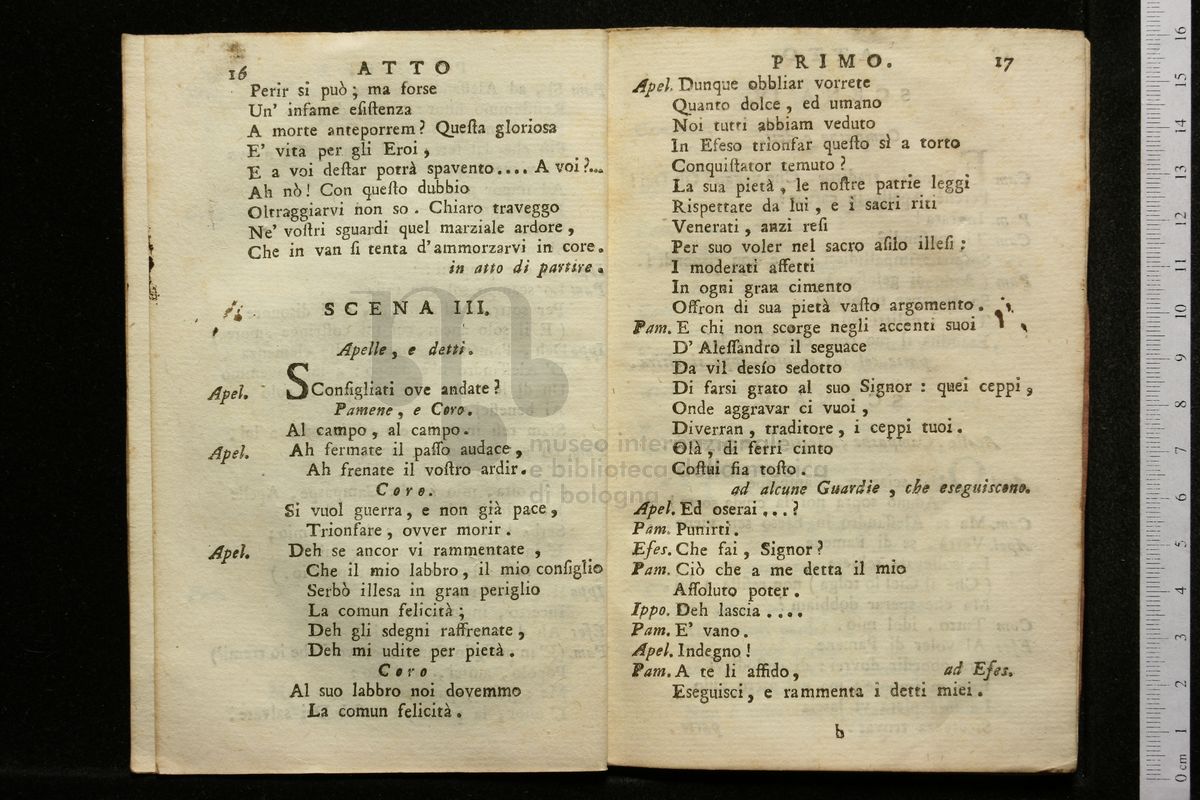 16 ATTO
Perir si può; ma forse
Un' infame esistenza
A morte anteporrem? Questa gloriosa
E' vita per gli Eroi,
E a voi destar potrà spavento.... A voi?...
Ah nò! Con questo dubbio
Oltraggiarvi non so. Chiaro traveggo
Ne' vostri sguardi quel marziale ardore,
Che in van si tenta d'ammorzarvi in core.
in atto di partire.
SCENA III.
Apelle, e detti.
Apel. SConsigliati ove andate?
Pamene, e Coro.
Al campo, al campo.
Apel. Ah fermate il passo audace,
Ah frenate il vostro ardir.
Coro.
Si vuol guerra, e non già pace,
Trionfare, ovver morir.
Apel. Deh se ancor vi rammentate,
Che il mio labbro, il mio consiglio
Serbò illesa in gran periglio
La comun felicità;
Deh gli sdegni raffrenate,
Deh mi udite per pietà.
Coro
Al suo labbro noi dovemmo
La comun felicità.
PRIMO. 17
Apel. Dunque obbliar vorrete
Quanto dolce, ed umano
Noi tutti abbiam veduto
In Efeso trionfar questo sì a torto
Conquistator temuto?
La sua pietà, le nostre patrie leggi
Rispettate da lui, e i sacri riti
Venerati, anzi resi
Per suo voler nel sacro asilo illesi:
I moderati affetti
In ogni gran cimento
Offron di sua pietà vasto argomento.
Pam. E chi non scorge negli accenti suoi
D' Alessandro il seguace
Da vil desío sedotto
Di farsi grato al suo Signor: quei ceppi,
Onde aggravar ci vuoi,
Diverran, traditore, i ceppi tuoi.
Olà, di ferri cinto
Costui sia tosto.
ad alcune Guardie, che eseguiscono.
Apel. Ed oserai...?
Pam. Punirti.
Efes. Che fai, Signor?
Pam. Ciò che a me detta il mio
Assoluto poter.
Ippo. Deh lascia....
Pam. E' vano.
Apel. Indegno!
Pam. A te li affido, ad Efes.
Eseguisci, e rammenta i detti miei.
b
museo internazionale
e biblioteca della musica
di bologna
0 cm 1 2 3 4 5 6 7 8 9 10 11 12 13 14 15 16